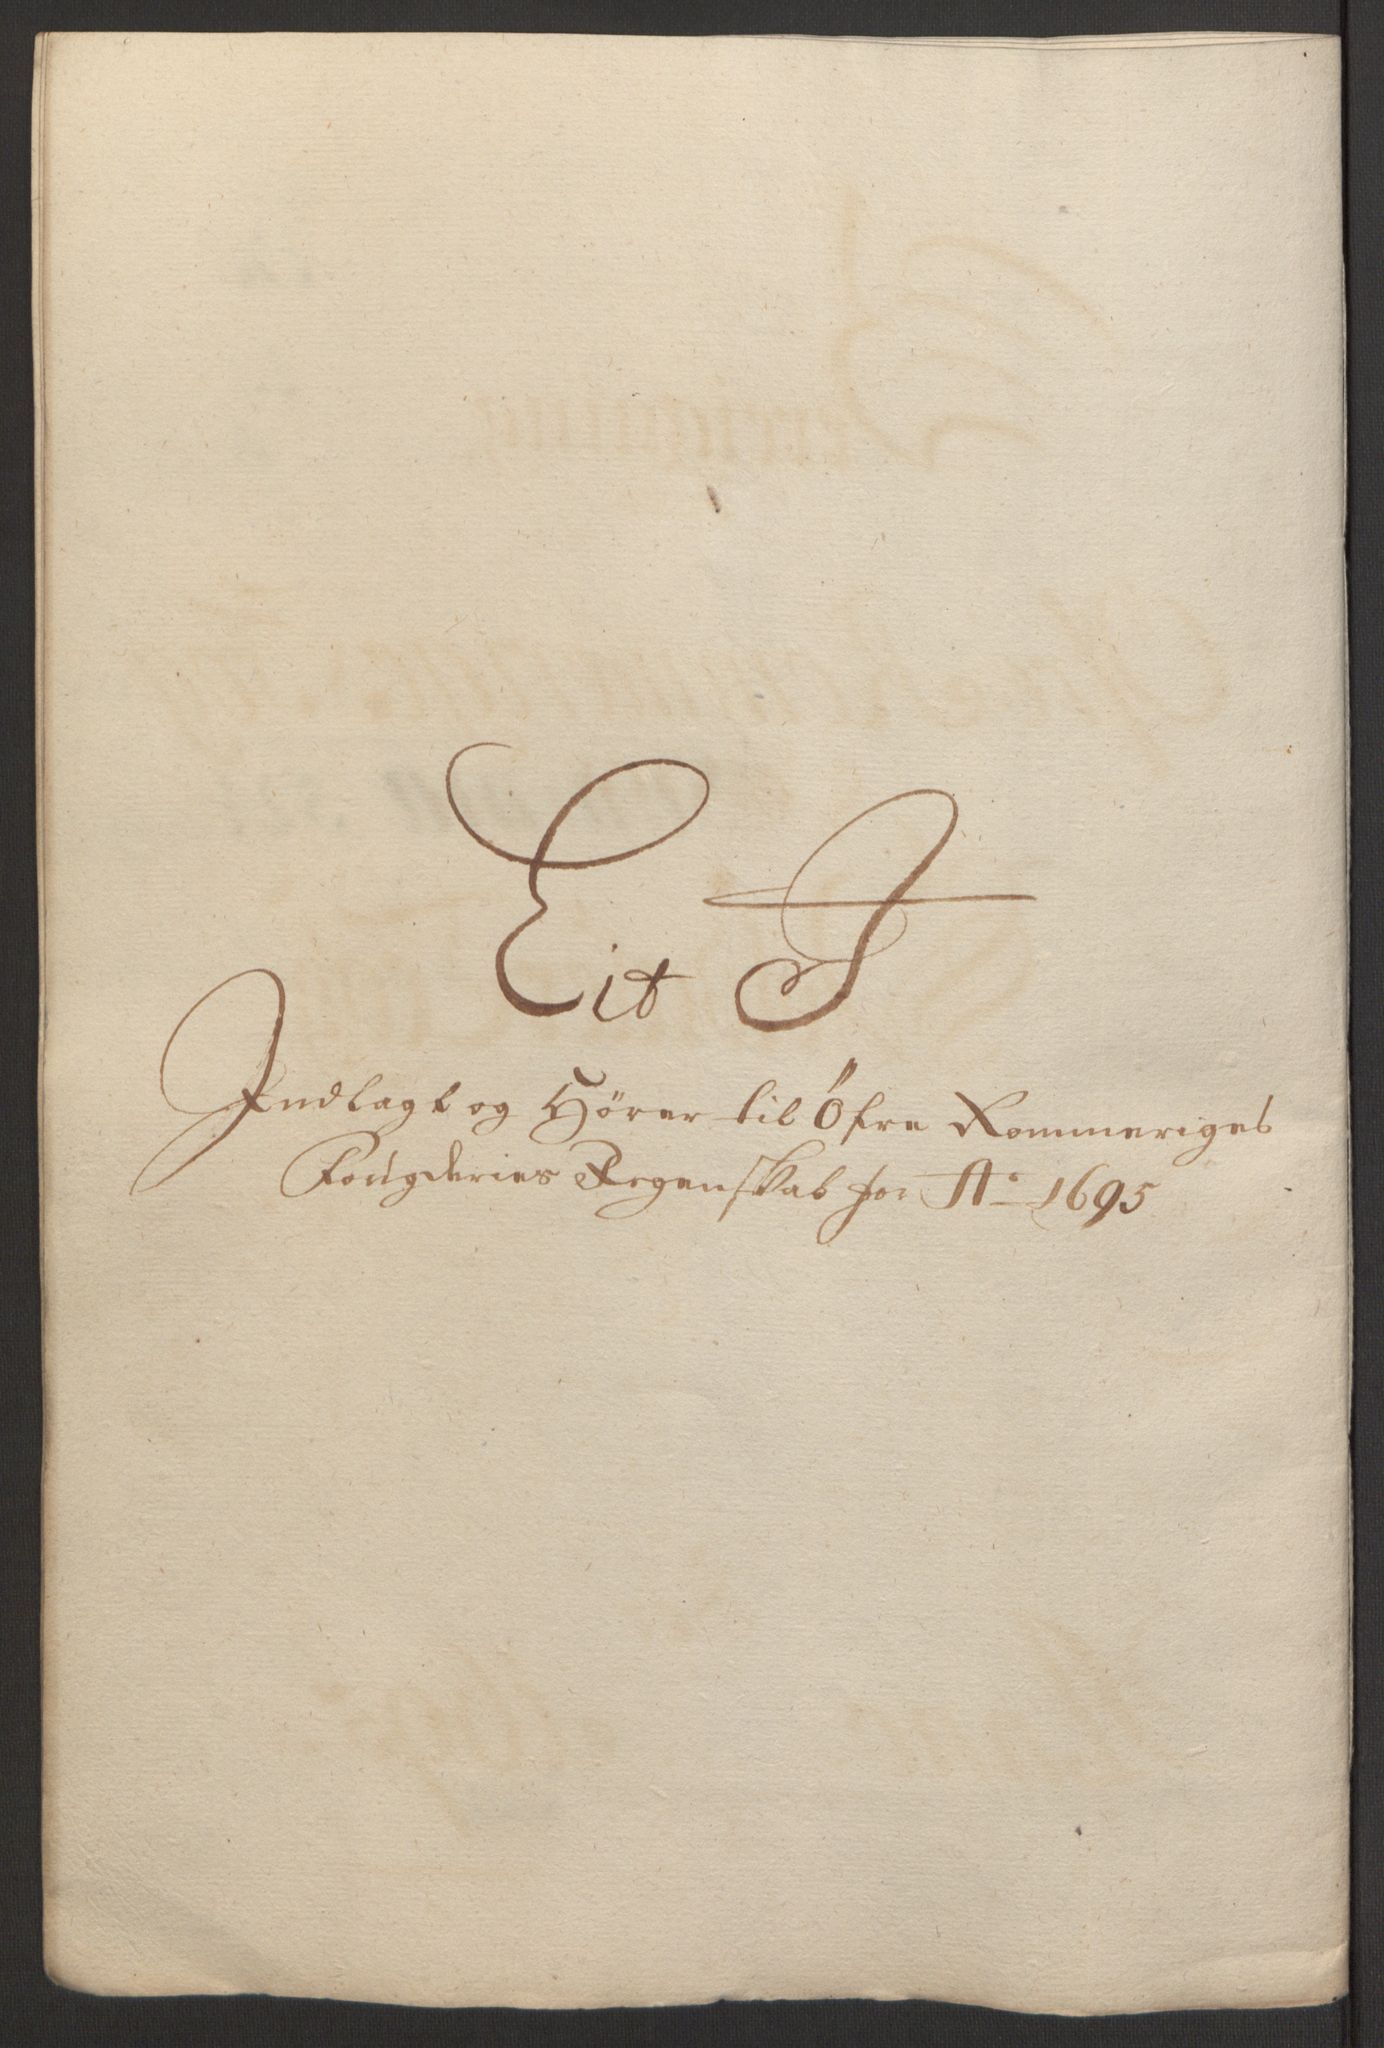 Lit J
Indlagt og Hörer til Öfre Rommeriges
Fougderies Regenskab for Ao 1695